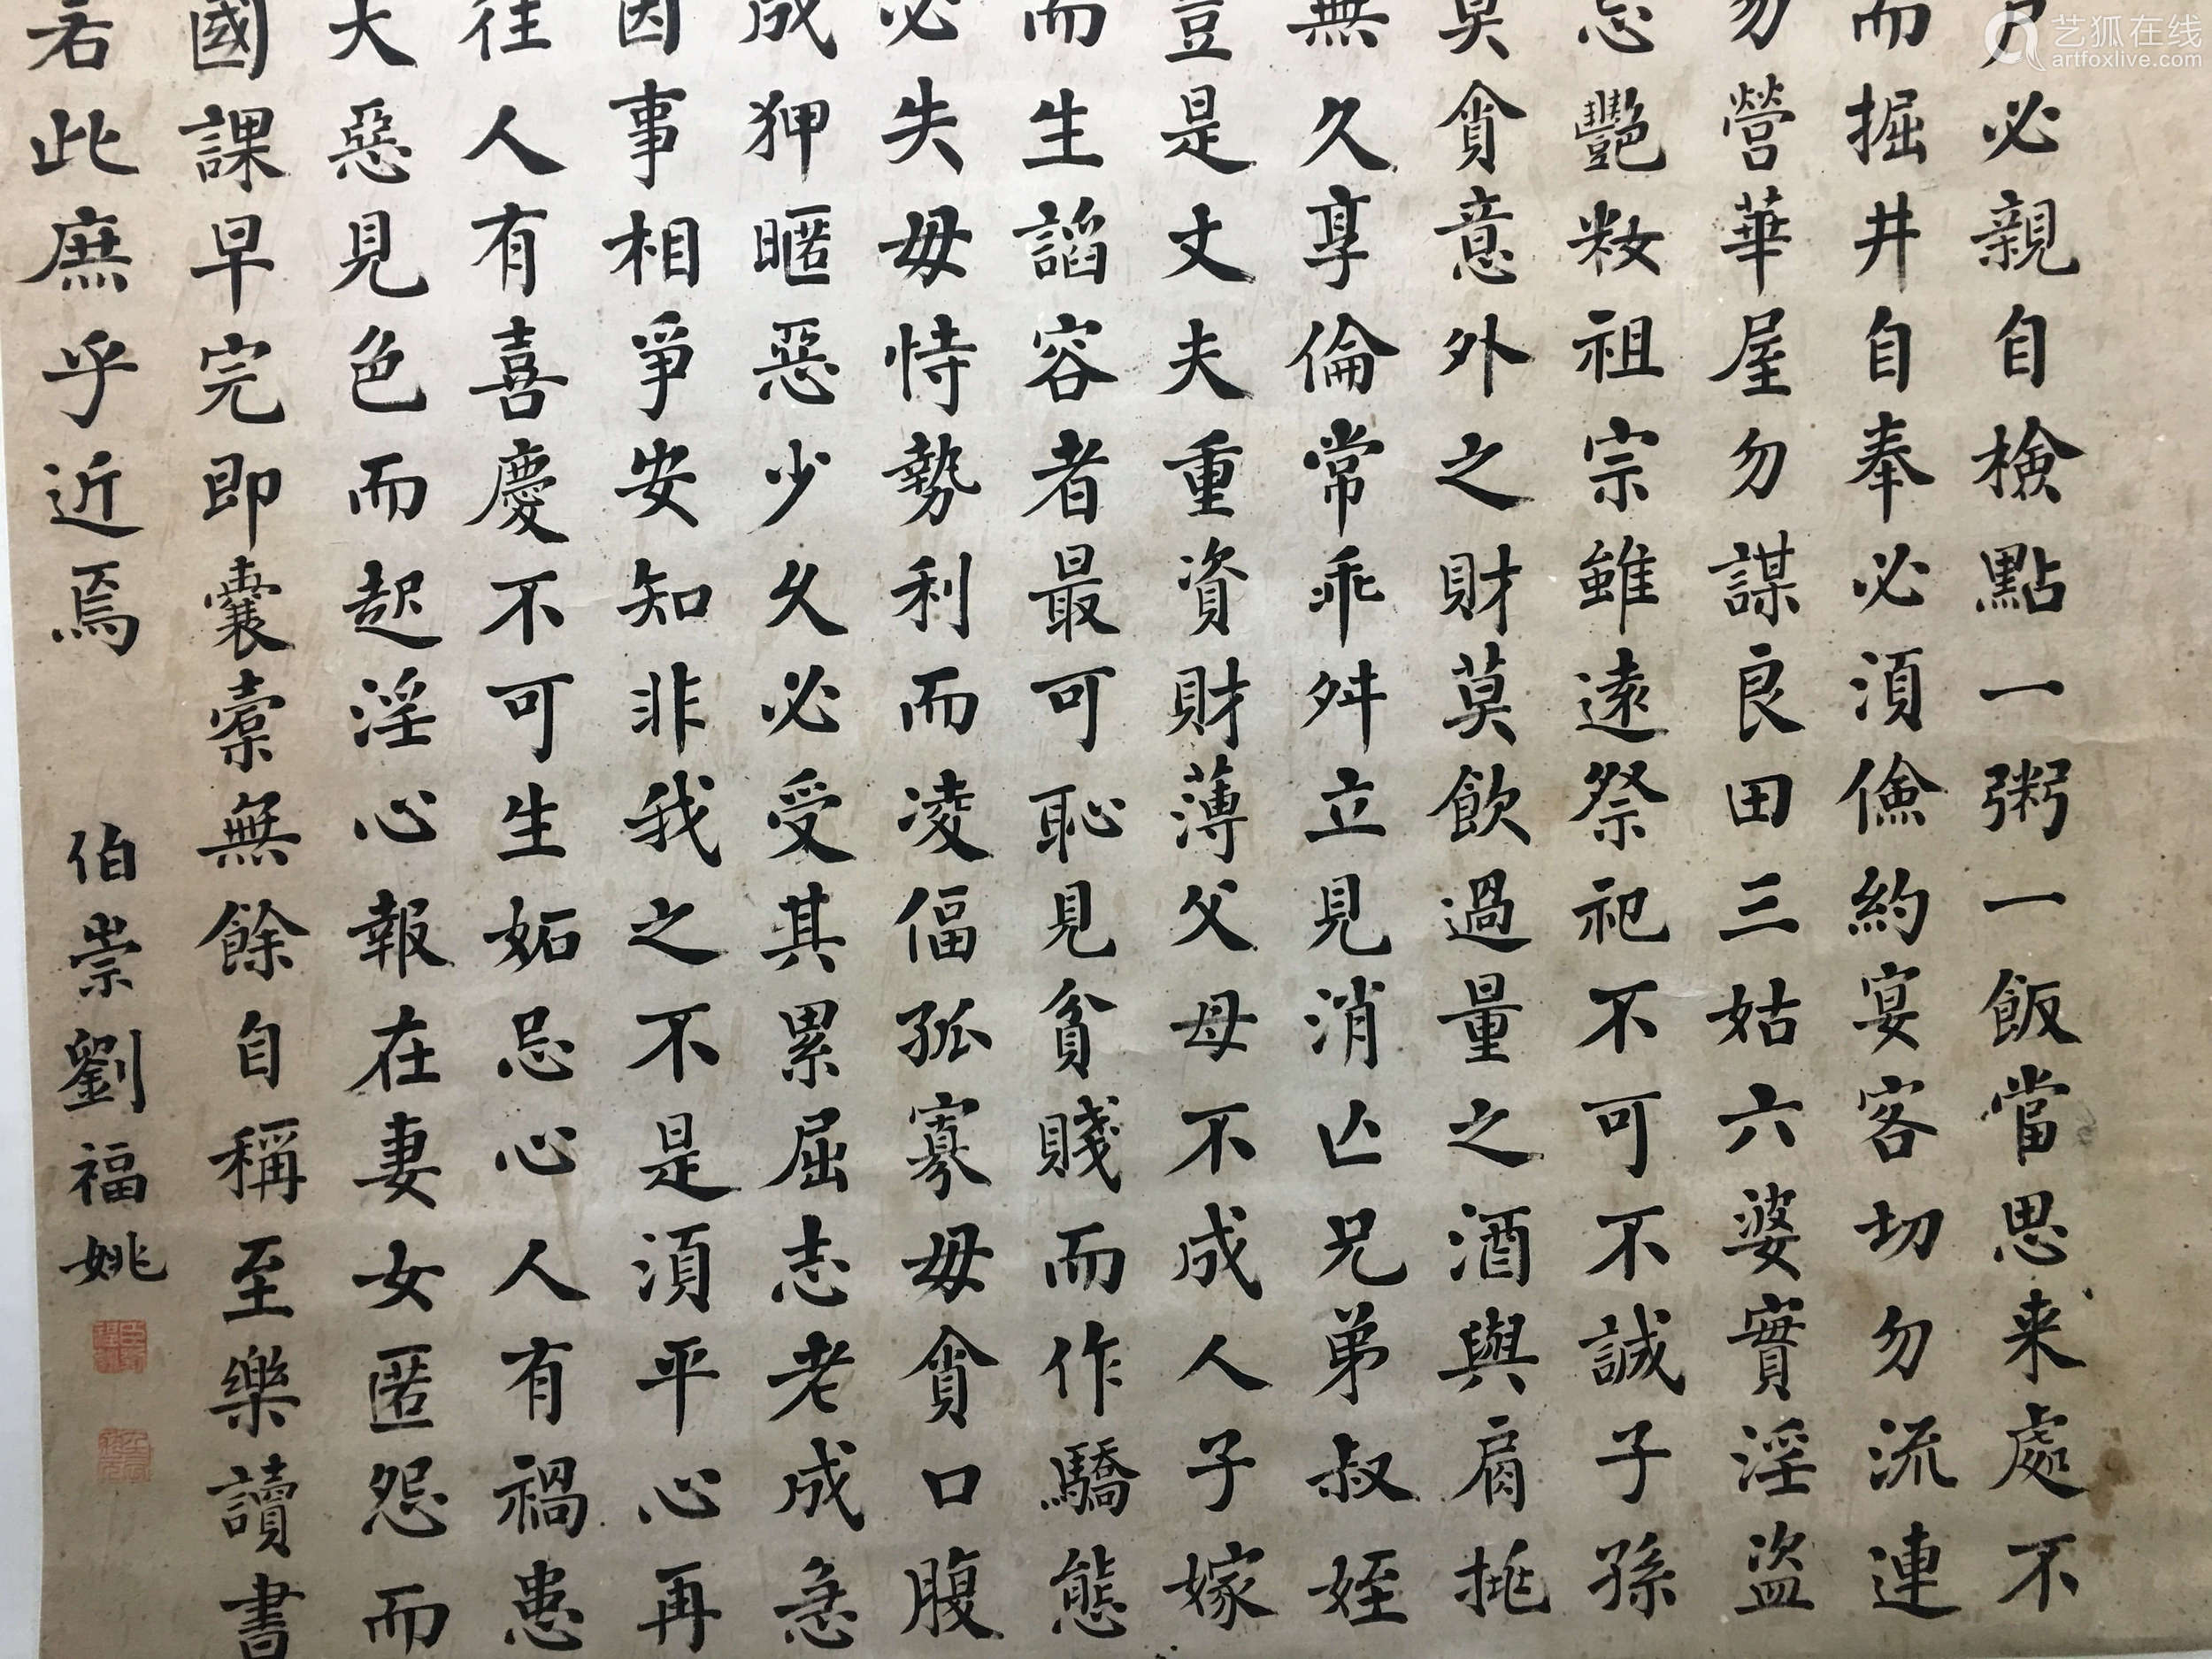 戶必親自檢點一粥一飯當思来處不
而掘井自奉必須儉約宴客切勿流連
勿營華屋勿謀良田三姑六婆實淫盜
忌艷粧祖宗雖遠祭祀不可不誠子孫
莫貪意外之財莫飲過量之酒與肩挑
無久享倫常乖舛立見消亡兄弟叔姪
豈是丈夫重資財薄父母不成人子嫁
而生諂容者最可恥見貧賤而作驕態
必失毋恃勢利而凌偪孤寡毋貪口腹
成狎暱惡少久必受其累屈志老成急
因事相爭安知非我之不是須平心再
往人有喜慶不可生妬忌心人有禍患
大惡見色而起淫心報在妻女匿怨而
國課早完即囊橐無餘自稱至樂讀書
若此庶乎近焉
伯崇劉福姚
艺狐在线
artfoxlive.com